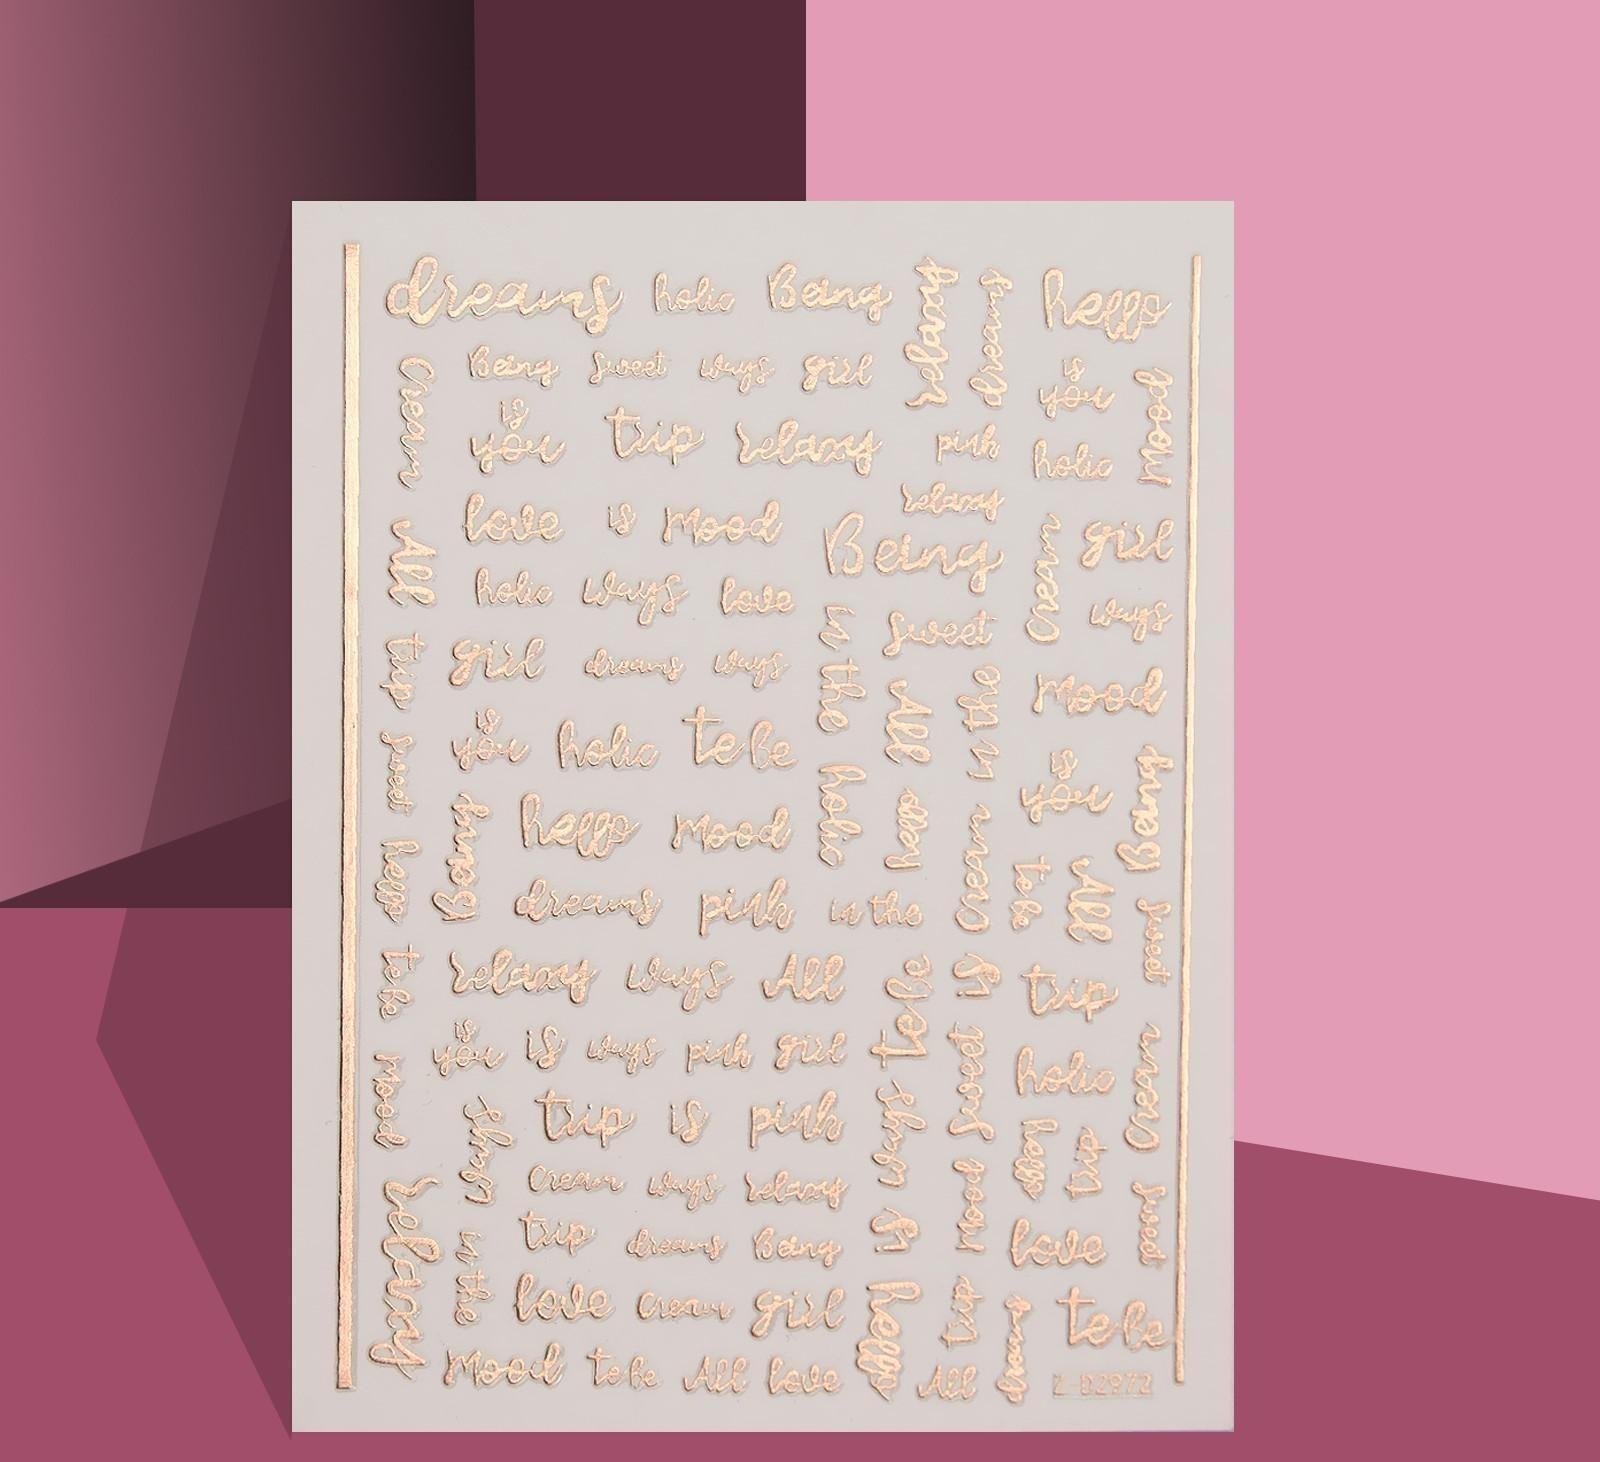 dreams holic Being relaxy dreams hello
Cream Being sweet ways girl is you Mood
is you trip relaxy pink holic
relaxy
love is Mood Being cream girl
All holic ways love in the sweet ways
trip girl dreams ways All in the Mood
sweet is you holic to be holic is you Being
Being hello Mood hello cream
hello dreams pink in the to be All sweet
to be relaxy ways All to be is trip
Mood is you is ways pink girl sweet holic cream
ways trip is pink ways hello trip
relaxy cream ways relaxy Mood sweet
in the trip dreams Being is love
love cream girl hello trip to be
Mood to be All love All Being
Z-D2972